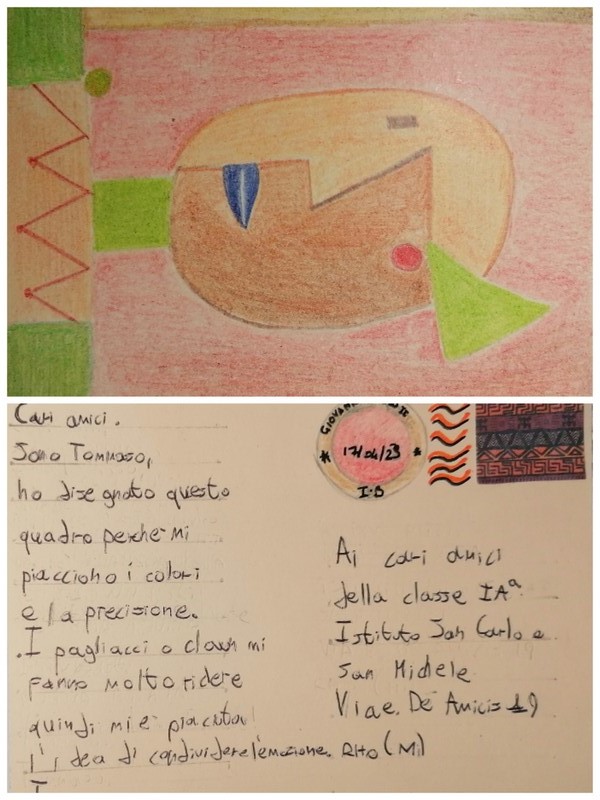 Cari amici.
Sono Tommaso,
ho disegnato questo
quadro perche mi
piacciono i colori
e la precisione.
I pagliacci o clown mi
fanno molto ridere
quindi mi e' piaciuta
l'idea di condividere l'emozione.
T
17/04/23
I-B
Ai cari amici
della classe IAª
Istituto San Carlo e
San Michele
Via e. De Amicis 19
RHO (Mi)